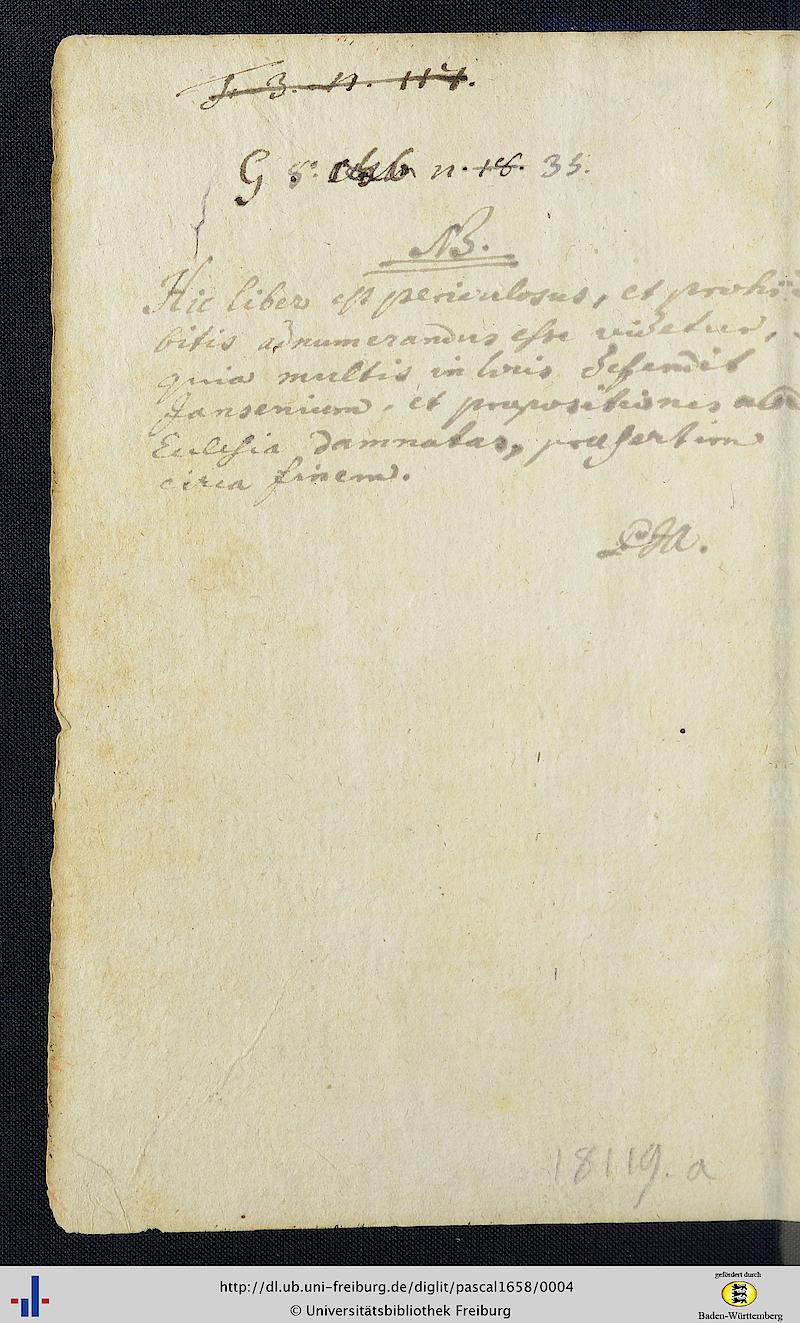 J. 3. n. 114.
G 8: n. 18. 35.
NB.
Hic liber est periculosus, et prohi
bitis adnumerandus esse videtur,
quia multis in locis defendit
Jansenium, et propositiones ab
Ecclesia damnatas, praesertim
circa finem.
18119. a
http://dl.ub.uni-freiburg.de/diglit/pascal1658/0004
© Universitätsbibliothek Freiburg
gefördert durch
Baden-Württemberg